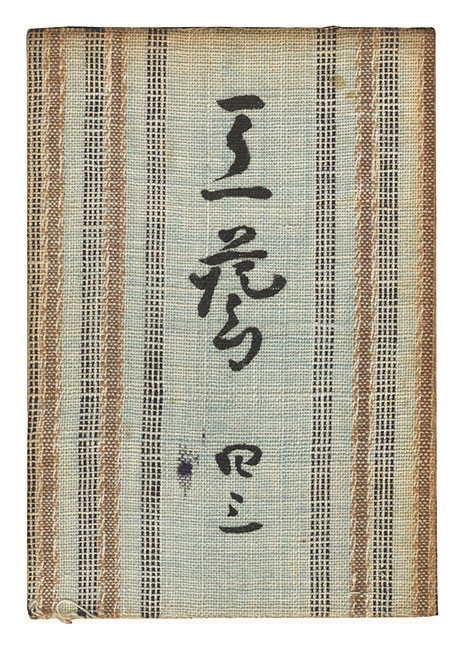 工藝
四三